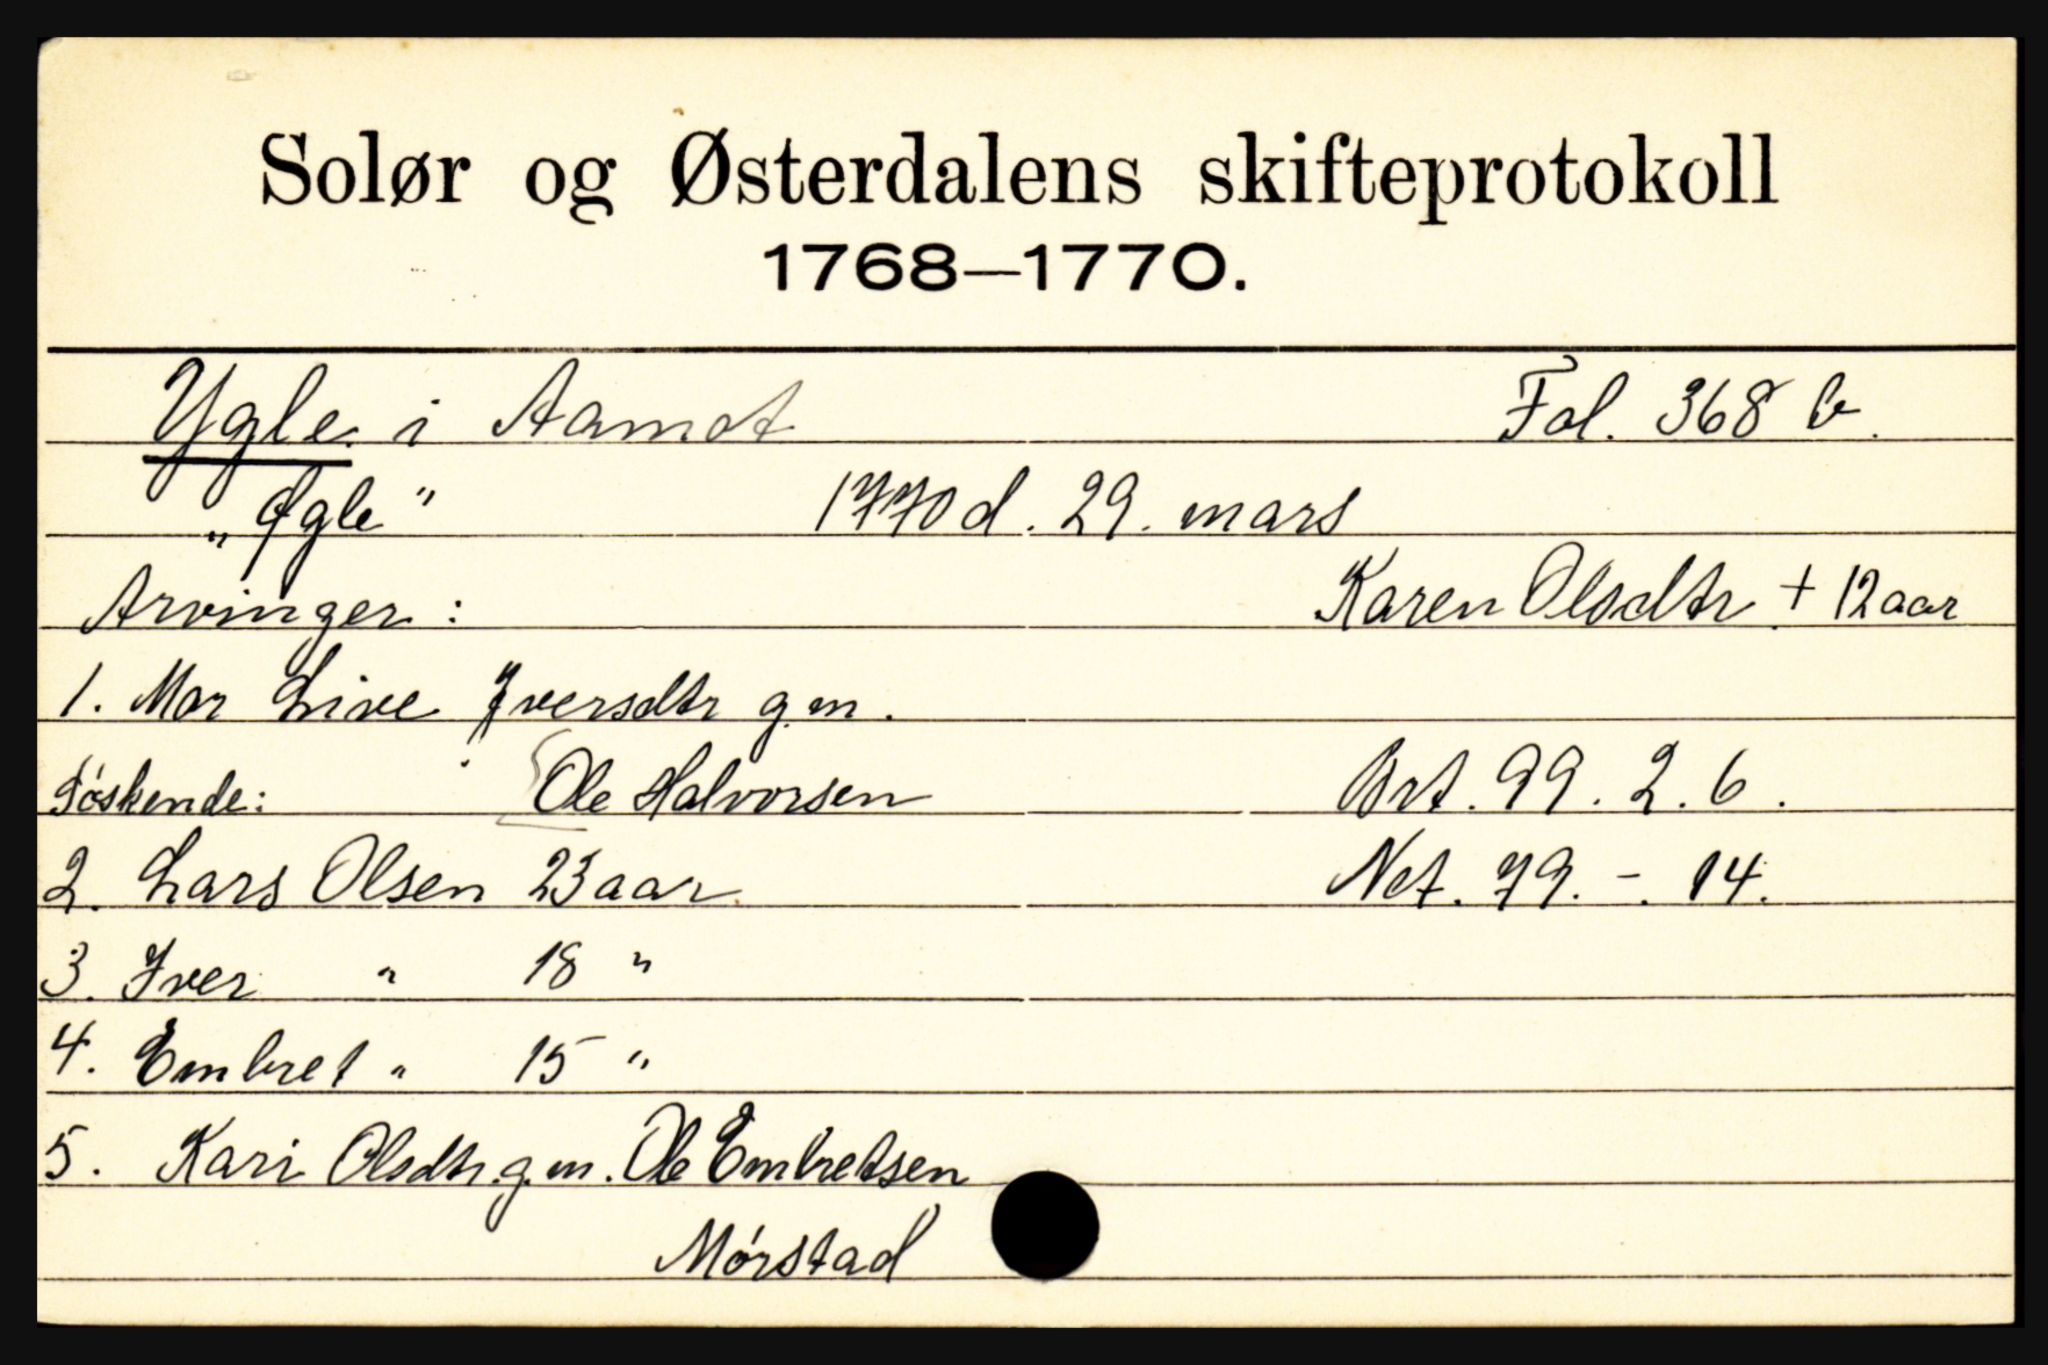 Solør og Østerdalens skifteprotokoll
1768—1770.
Ygle i Aamot Fol. 368 b.
„Øgle" 1770 d. 29. mars
Arvinger: Karen Olsdtr. + 12 aar
1. Mor Live Iversdtr g.m.
Söskende: Ole Halvorsen Brt. 99. 2. 6.
2. Lars Olsen 23 aar Net. 79. -. 14.
3. Iver " 18 "
4. Embret " 15 "
5. Kari Olsdtr. g.m. Ole Embretsen
Mórstad